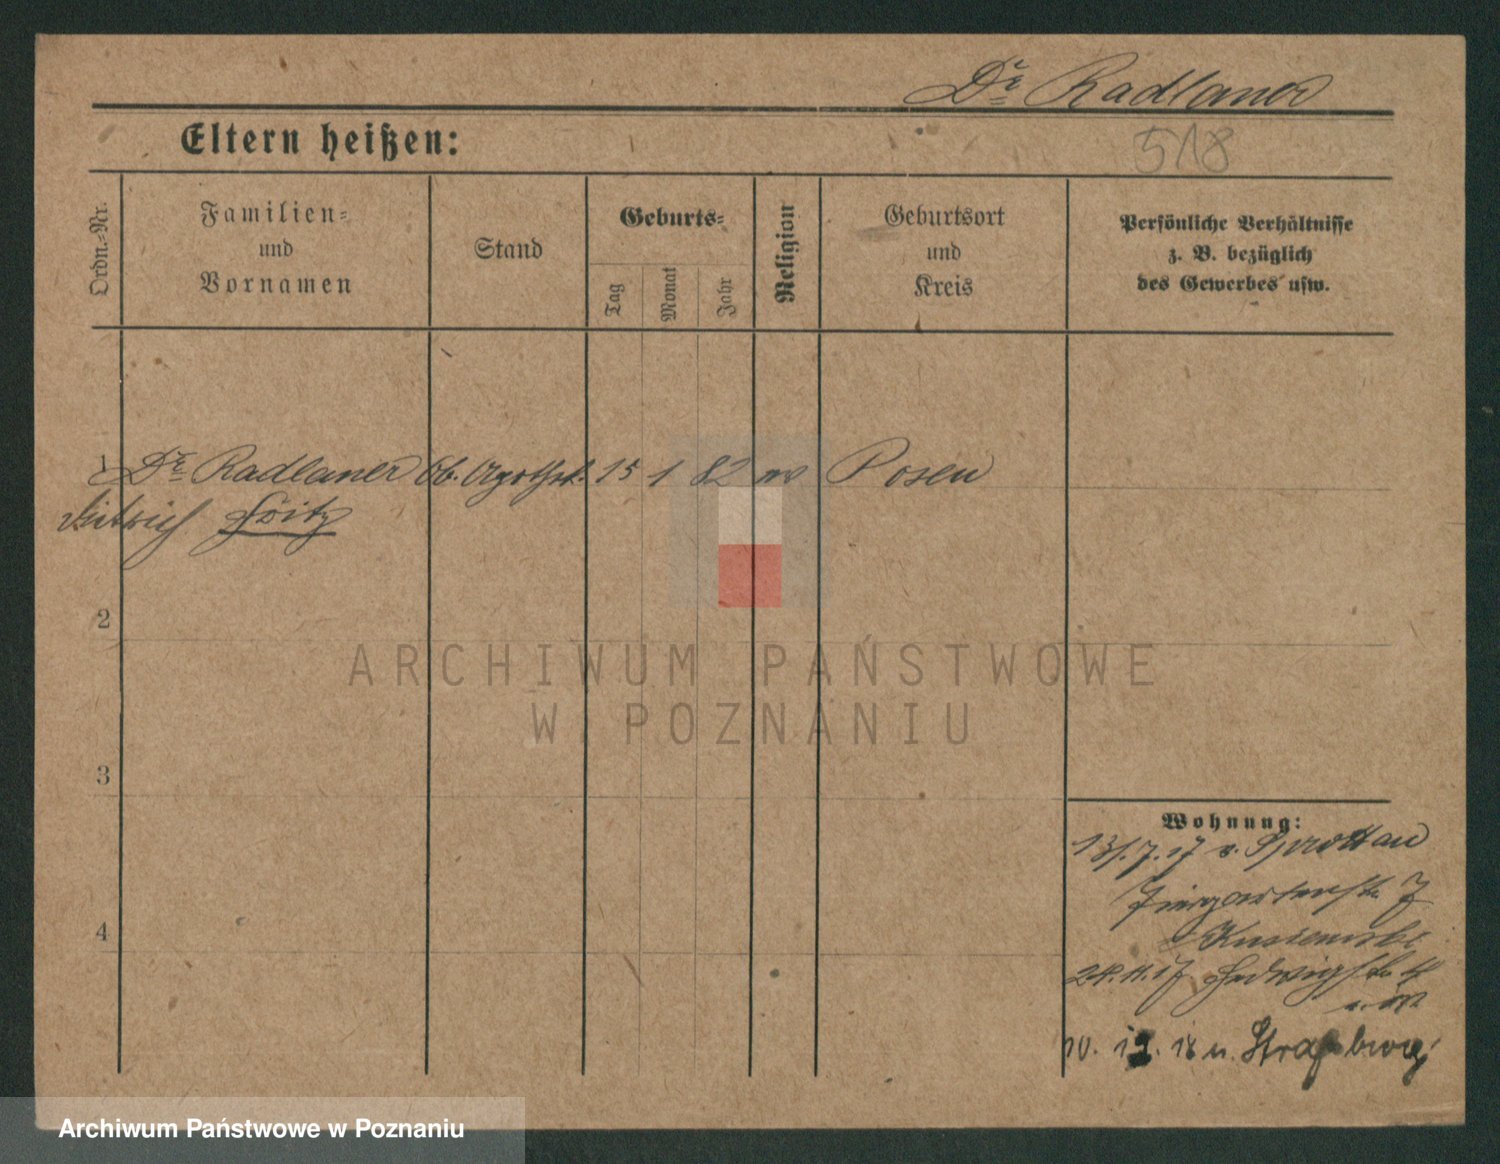 Dr Radlauer
518
Eltern heißen:
Ordn.-Nr.
Familien-
und
Vornamen
Stand
Geburts-
Tag
Monat
Jahr
Religion
Geburtsort
und
Kreis
Persönliche Verhältnisse
z. B. bezüglich
des Gewerbes usw.
1 Dr Radlauer Ob. Apothek. 15 1 82 m Posen
Fritz
2
3
4
Wohnung:
13/.7.17 v. Sprottau
Tiergartenstr. 7
24.11.17 Hedwigstr. 4
10. 12. 18 n. Straßburg
ARCHIWUM PAŃSTWOWE
W POZNANIU
Archiwum Państwowe w Poznaniu